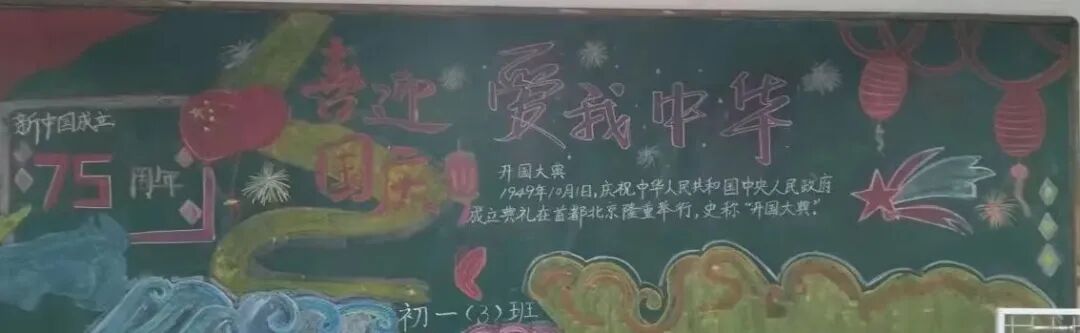 新中国成立
75周年
喜迎
国庆
爱我中华
开国大典
1949年10月1日,庆祝中华人民共和国中央人民政府
成立典礼在首都北京隆重举行,史称“开国大典”.
初一(3)班